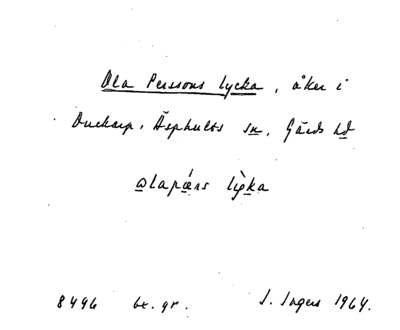 Ola Perssons lycka, åker i
Duckarp, Äsphults sn, Gärds hd
ωlapæ̀rs lỳka
8496 bx. gr. I. Ingers 1964.